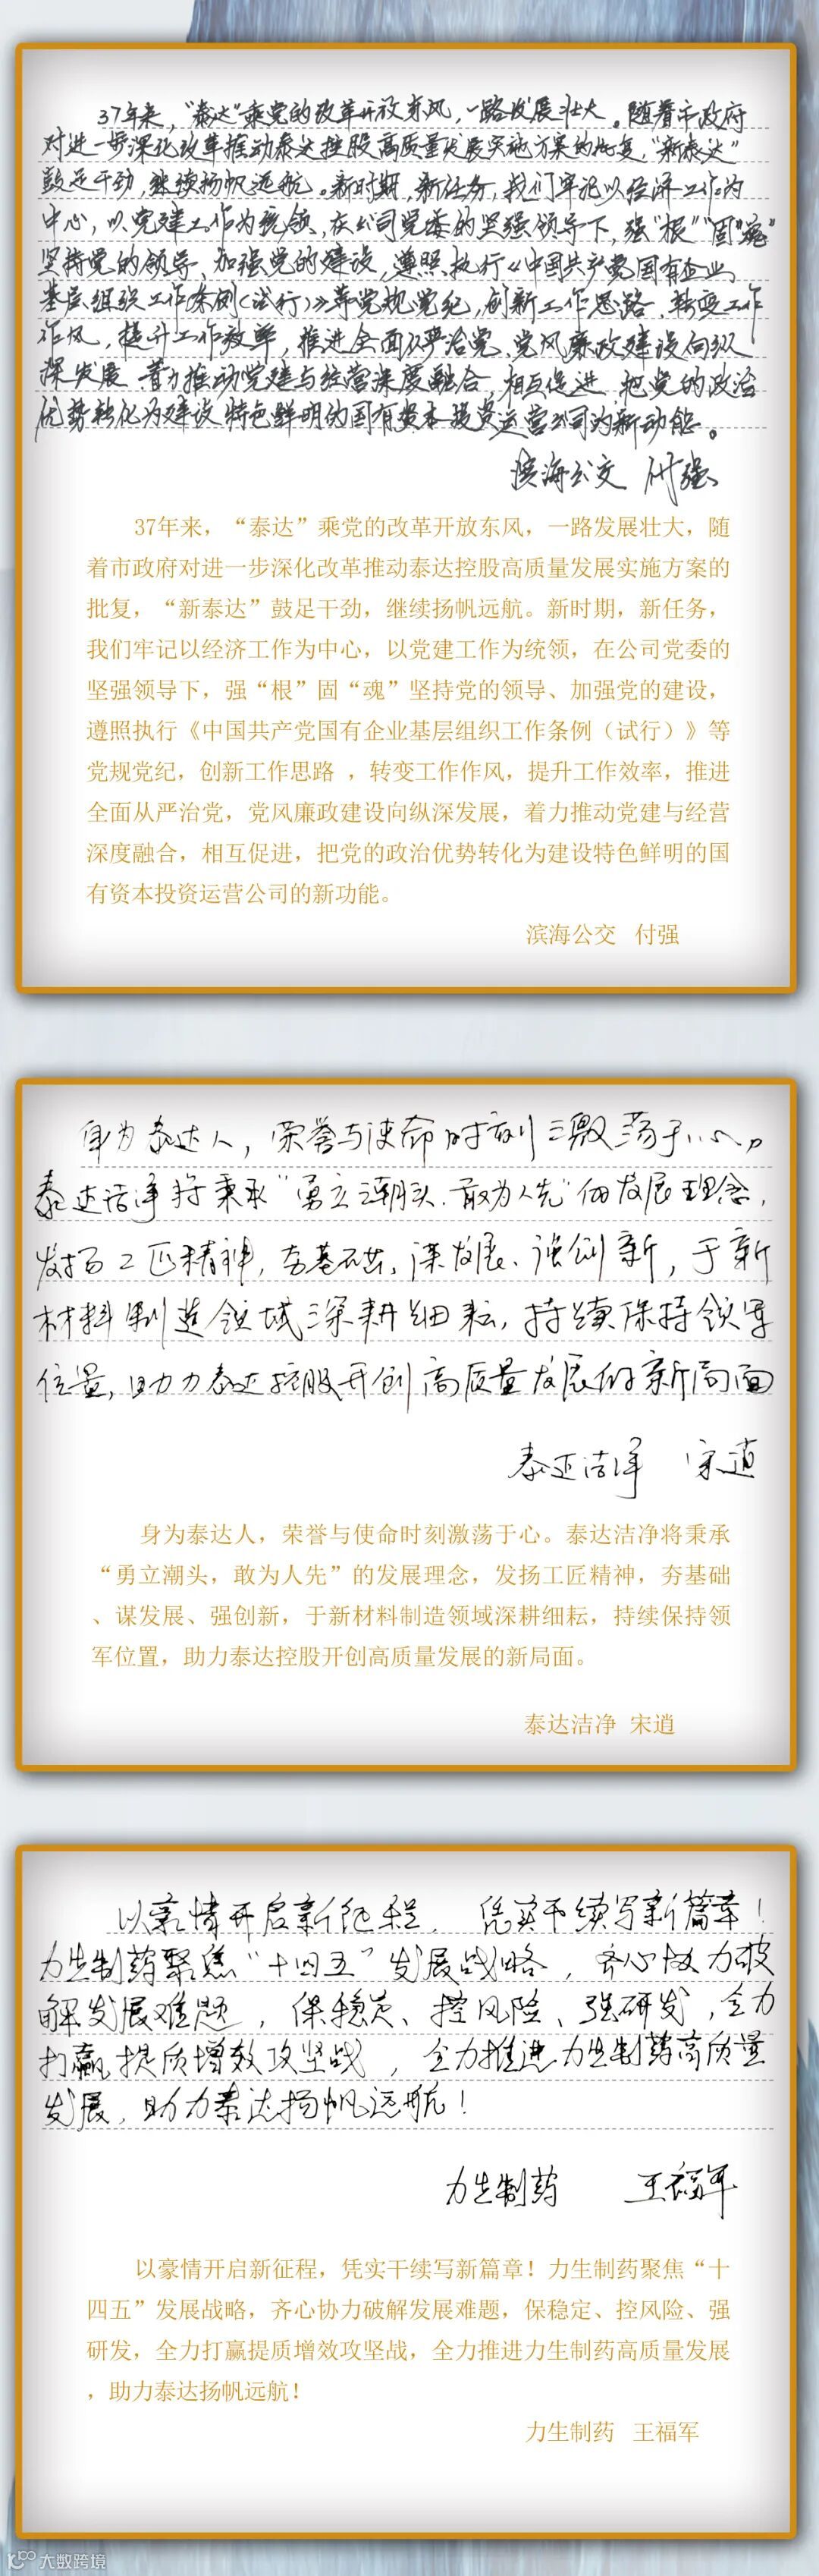 37年来，“泰达”乘党的改革开放东风，一路发展壮大。随着市政府
对进一步深化改革推动泰达控股高质量发展实施方案的批复，“新泰达”
鼓足干劲，继续扬帆远航。新时期，新任务，我们牢记以经济工作为
中心，以党建工作为统领，在公司党委的坚强领导下，强“根”固“魂”
坚持党的领导、加强党的建设，遵照执行《中国共产党国有企业
基层组织工作条例（试行）》等党规党纪，创新工作思路，转变工作
作风，提升工作效率，推进全面从严治党，党风廉政建设向纵
深发展 着力推动党建与经营深度融合，相互促进，把党的政治
优势转化为建设特色鲜明的国有资本投资运营公司的新动能。
滨海公交 付强
37年来，“泰达”乘党的改革开放东风，一路发展壮大，随
着市政府对进一步深化改革推动泰达控股高质量发展实施方案的
批复，“新泰达”鼓足干劲，继续扬帆远航。新时期，新任务，
我们牢记以经济工作为中心，以党建工作为统领，在公司党委的
坚强领导下，强“根”固“魂”坚持党的领导、加强党的建设，
遵照执行《中国共产党国有企业基层组织工作条例（试行）》等
党规党纪，创新工作思路 ，转变工作作风，提升工作效率，推进
全面从严治党，党风廉政建设向纵深发展，着力推动党建与经营
深度融合，相互促进，把党的政治优势转化为建设特色鲜明的国
有资本投资运营公司的新功能。
滨海公交 付强
身为泰达人，荣誉与使命时刻激荡于心，
泰达洁净将秉承“勇立潮头、敢为人先”的发展理念，
发扬工匠精神，夯基础、谋发展、强创新，于新
材料制造领域深耕细耘，持续保持领军
位置，助力泰达控股开创高质量发展的新局面
泰达洁净 宋逍
身为泰达人，荣誉与使命时刻激荡于心。泰达洁净将秉承
“勇立潮头，敢为人先”的发展理念，发扬工匠精神，夯基础
、谋发展、强创新，于新材料制造领域深耕细耘，持续保持领
军位置，助力泰达控股开创高质量发展的新局面。
泰达洁净 宋逍
以豪情开启新征程，凭实干续写新篇章！
力生制药聚焦“十四五”发展战略，齐心协力破
解发展难题，保稳定、控风险、强研发，全力
打赢提质增效攻坚战，全力推进力生制药高质量
发展，助力泰达扬帆远航！
力生制药 王福军
以豪情开启新征程，凭实干续写新篇章！力生制药聚焦“十
四五”发展战略，齐心协力破解发展难题，保稳定、控风险、强
研发，全力打赢提质增效攻坚战，全力推进力生制药高质量发展
，助力泰达扬帆远航！
力生制药 王福军
大数跨境